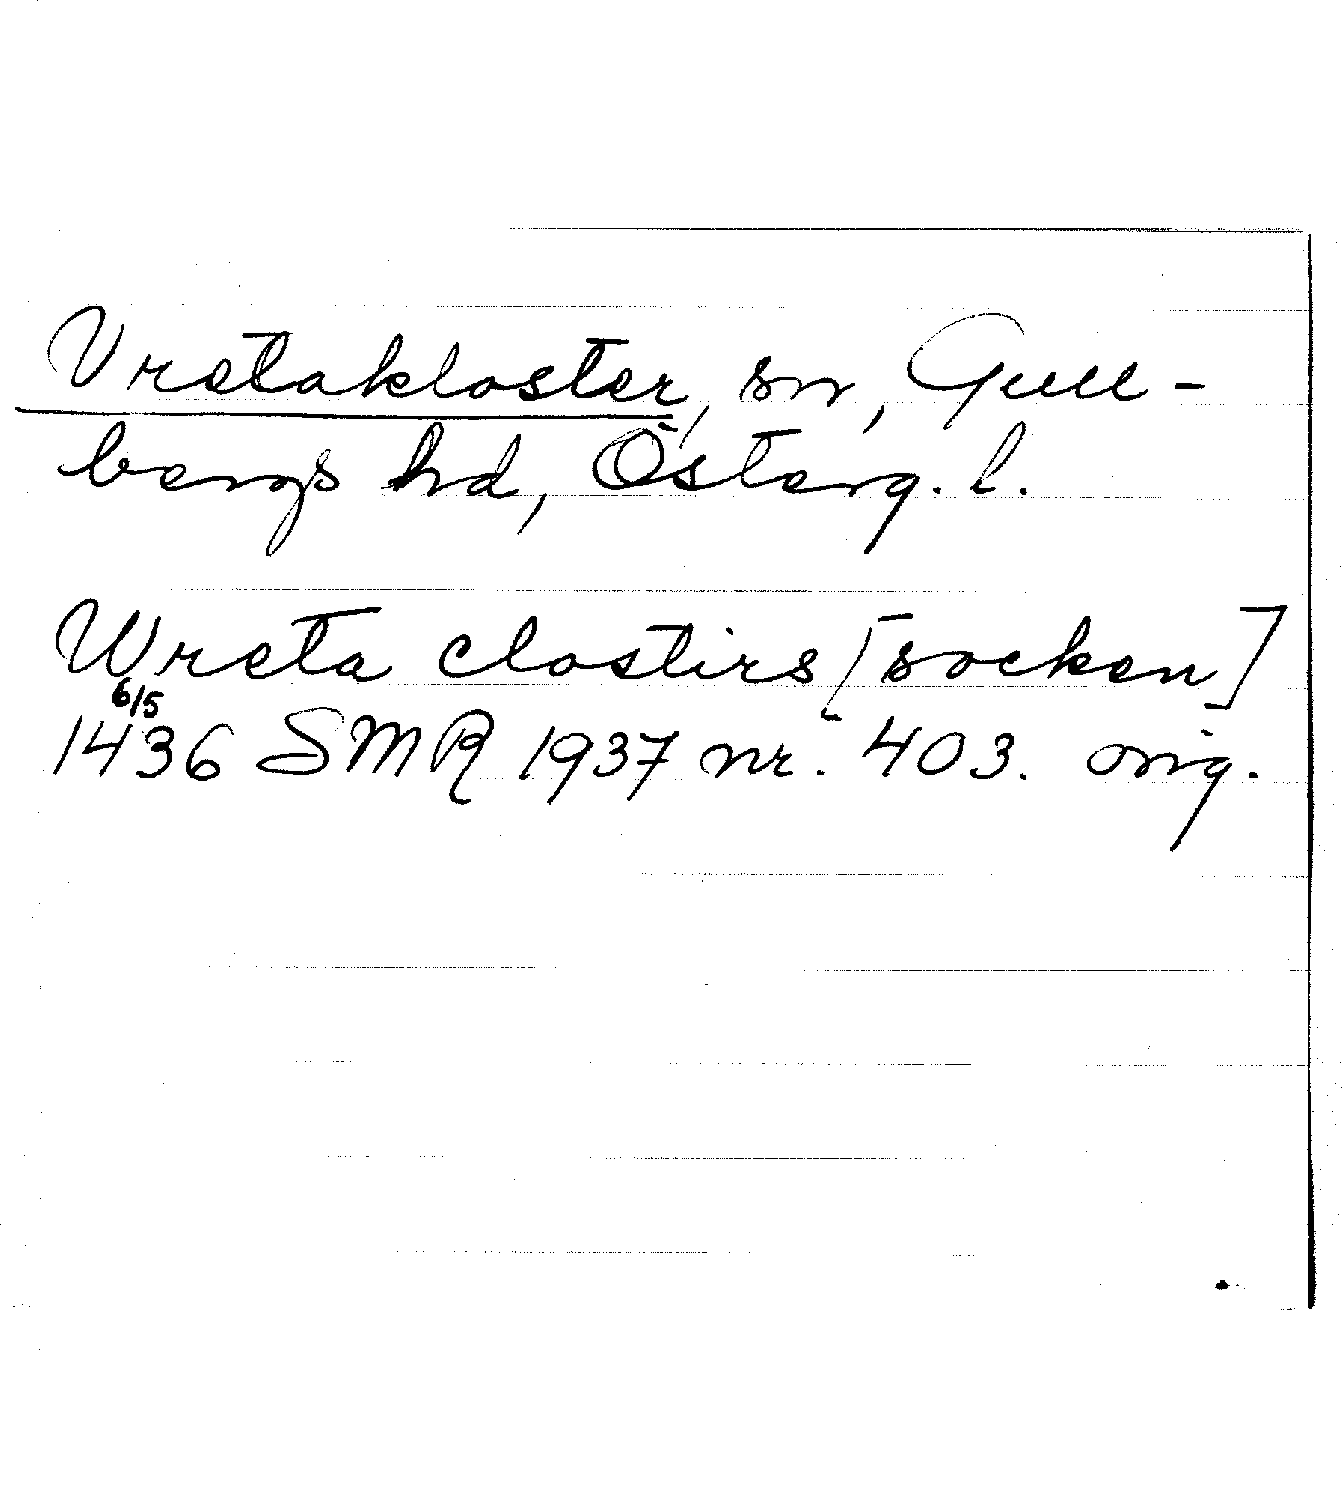 Vretakloster, sn, Gull-
bergs hd, Österg. l.
Wreta clostirs [socken]
6/5
1436 SMR 1937 nr. 403. orig.